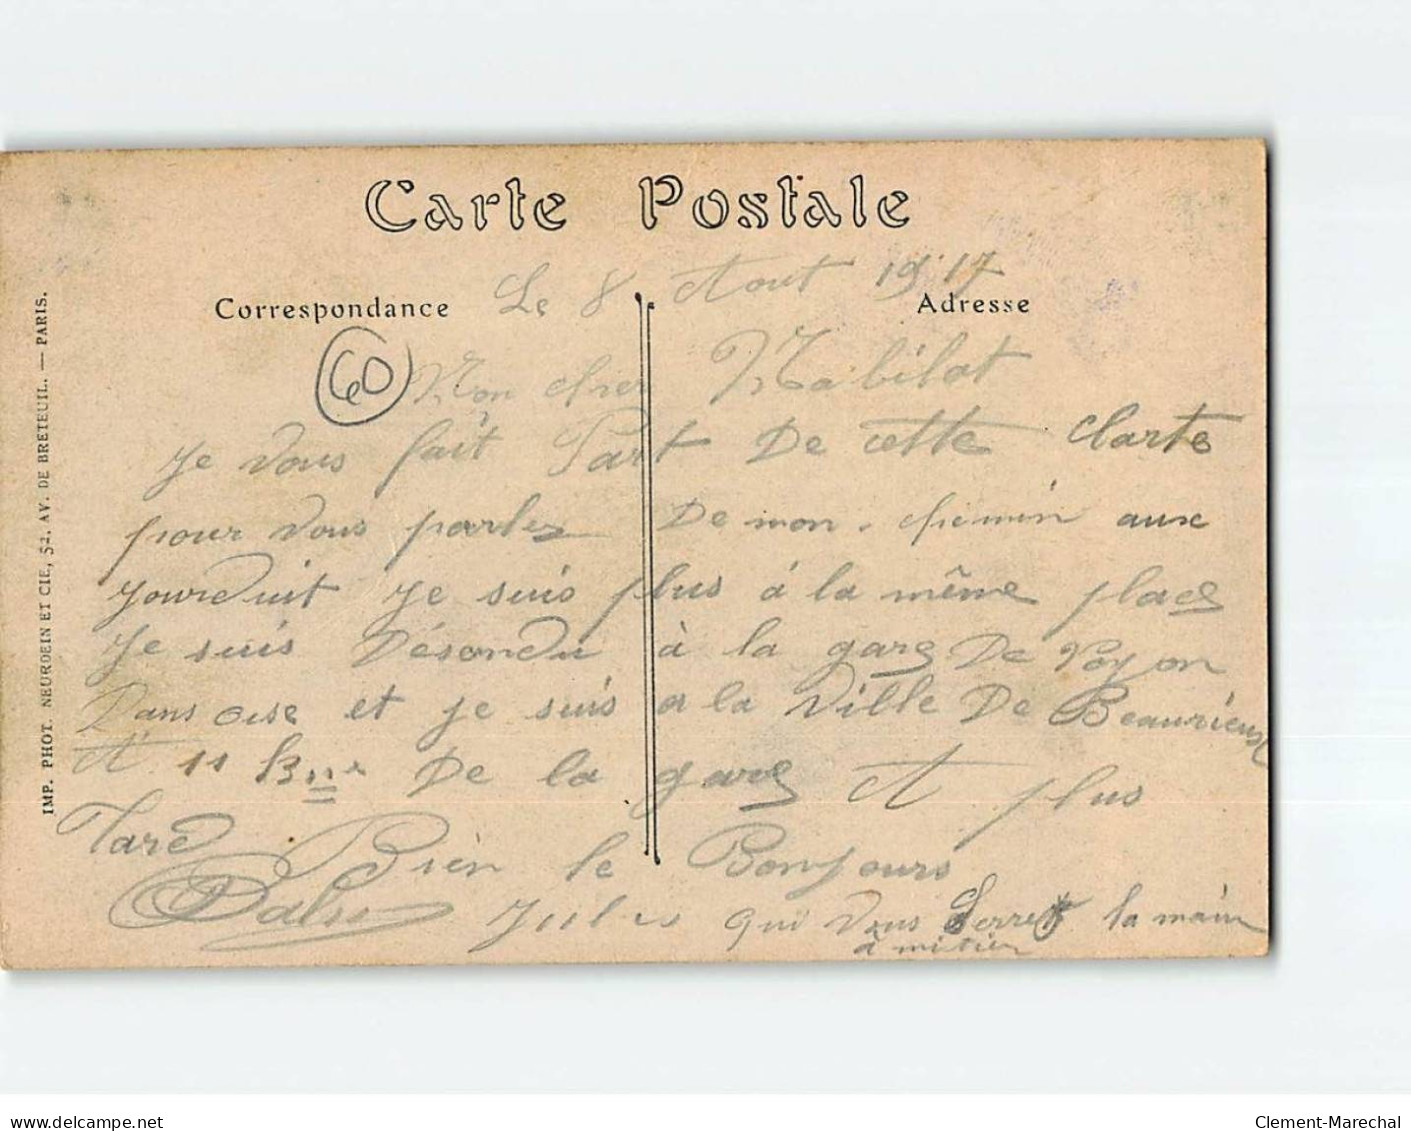 Carte Postale
Le 8 Aout 1917
Correspondance
Adresse
60
Mon cher Mabilat
je vous fait Part De cette Carte
pour vous parler De mon chemin aux
jourduit je suis plus á la même place
Je suis Désendu à la gare De Noyon
Dans oise et je suis a la Ville De Beaurieux
et 11 De la gare et plus
Tard Bien le Bonjours
Jules qui vous Serre la main
à mitier
IMP. PHOT. NEURDEIN ET CIE, 52. AV. DE BRETEUIL. — PARIS.
delcampe.net
Clement-Marechal